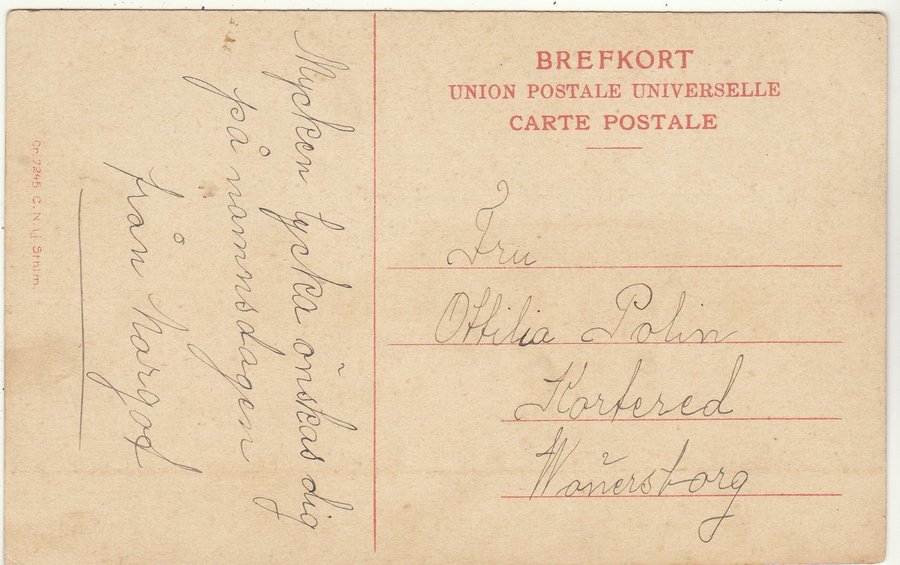 Mycken lycka önskas dig
på namnsdagen
från Margot
BREFKORT
UNION POSTALE UNIVERSELLE
CARTE POSTALE
Fru
Ottilia Polin
Kortered
Wönersborg
Cn. 7245 C. N. Lj Sthlm.